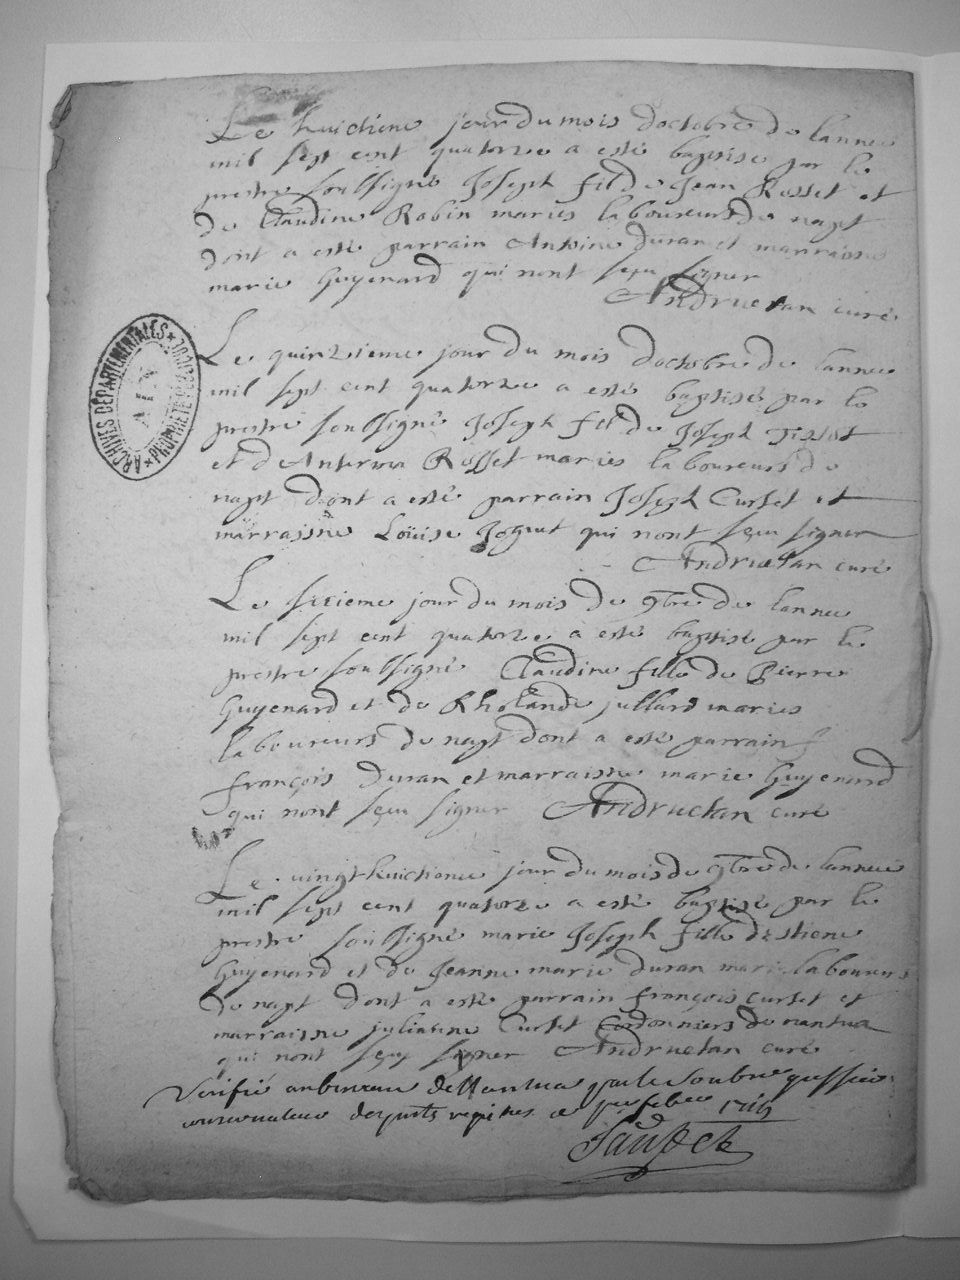 Le huictieme jour du mois doctobre de lannee
mil sept cent quatorze a esté baptise par le
prestre soubsigné Joseph fil de Jean Rosset et
de Claudine Robin mariés laboureurs de napt
dont a esté parrain Antoine duran et marraisne
marie Guyenard qui nont sceu signer
Andruetan curé
Le quinzieme jour du mois doctobre de lannee
mil sept cent quatorze a esté baptisé par le
prestre soubsigné Joseph fil de Joseph
et d Rosset mariés laboureurs de
napt dont a esté parrain Joseph Curtet et
marraisne Loüise Joguet qui nont sceu signer
Andruetan curé
Le sixieme jour du mois de 9bre de lannee
mil sept cent quatorze a esté baptisé par le
prestre soubsigné Claudine fille de Pierre
Guyenard et de Rholande jullard mariés
laboureurs de napt dont a esté parrain
françois duran et marraisne marie Guyenard
qui nont sceu signer Andruetan curé
Le vingt huictieme jour du mois de 9bre de lannee
mil sept cent quatorze a esté baptisé par le
prestre soubsigné marie Joseph fille destiene
Guyenard et de Jeanne marie duran mariés laboureurs
de napt dont a esté parrain françois curtet et
marraisne julianne Curtet Cordonniers de nantua
qui nont sceu signer Andruetan curé
Verifié au bureau de Nantua par le soubsigné
registres ce febvr 1715
ARCHIVES DÉPARTEMENTALES * PROPRIÉTÉ PUBLIQUE *
AIN